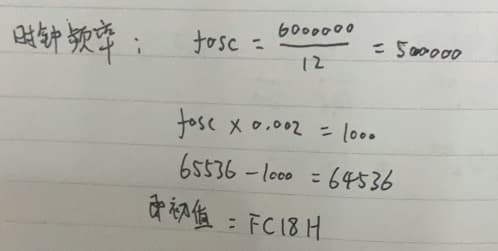 时钟频率： fosc = 6000000/12 = 500000
fosc × 0.002 = 1000
65536 - 1000 = 64536
初值 = FC18H